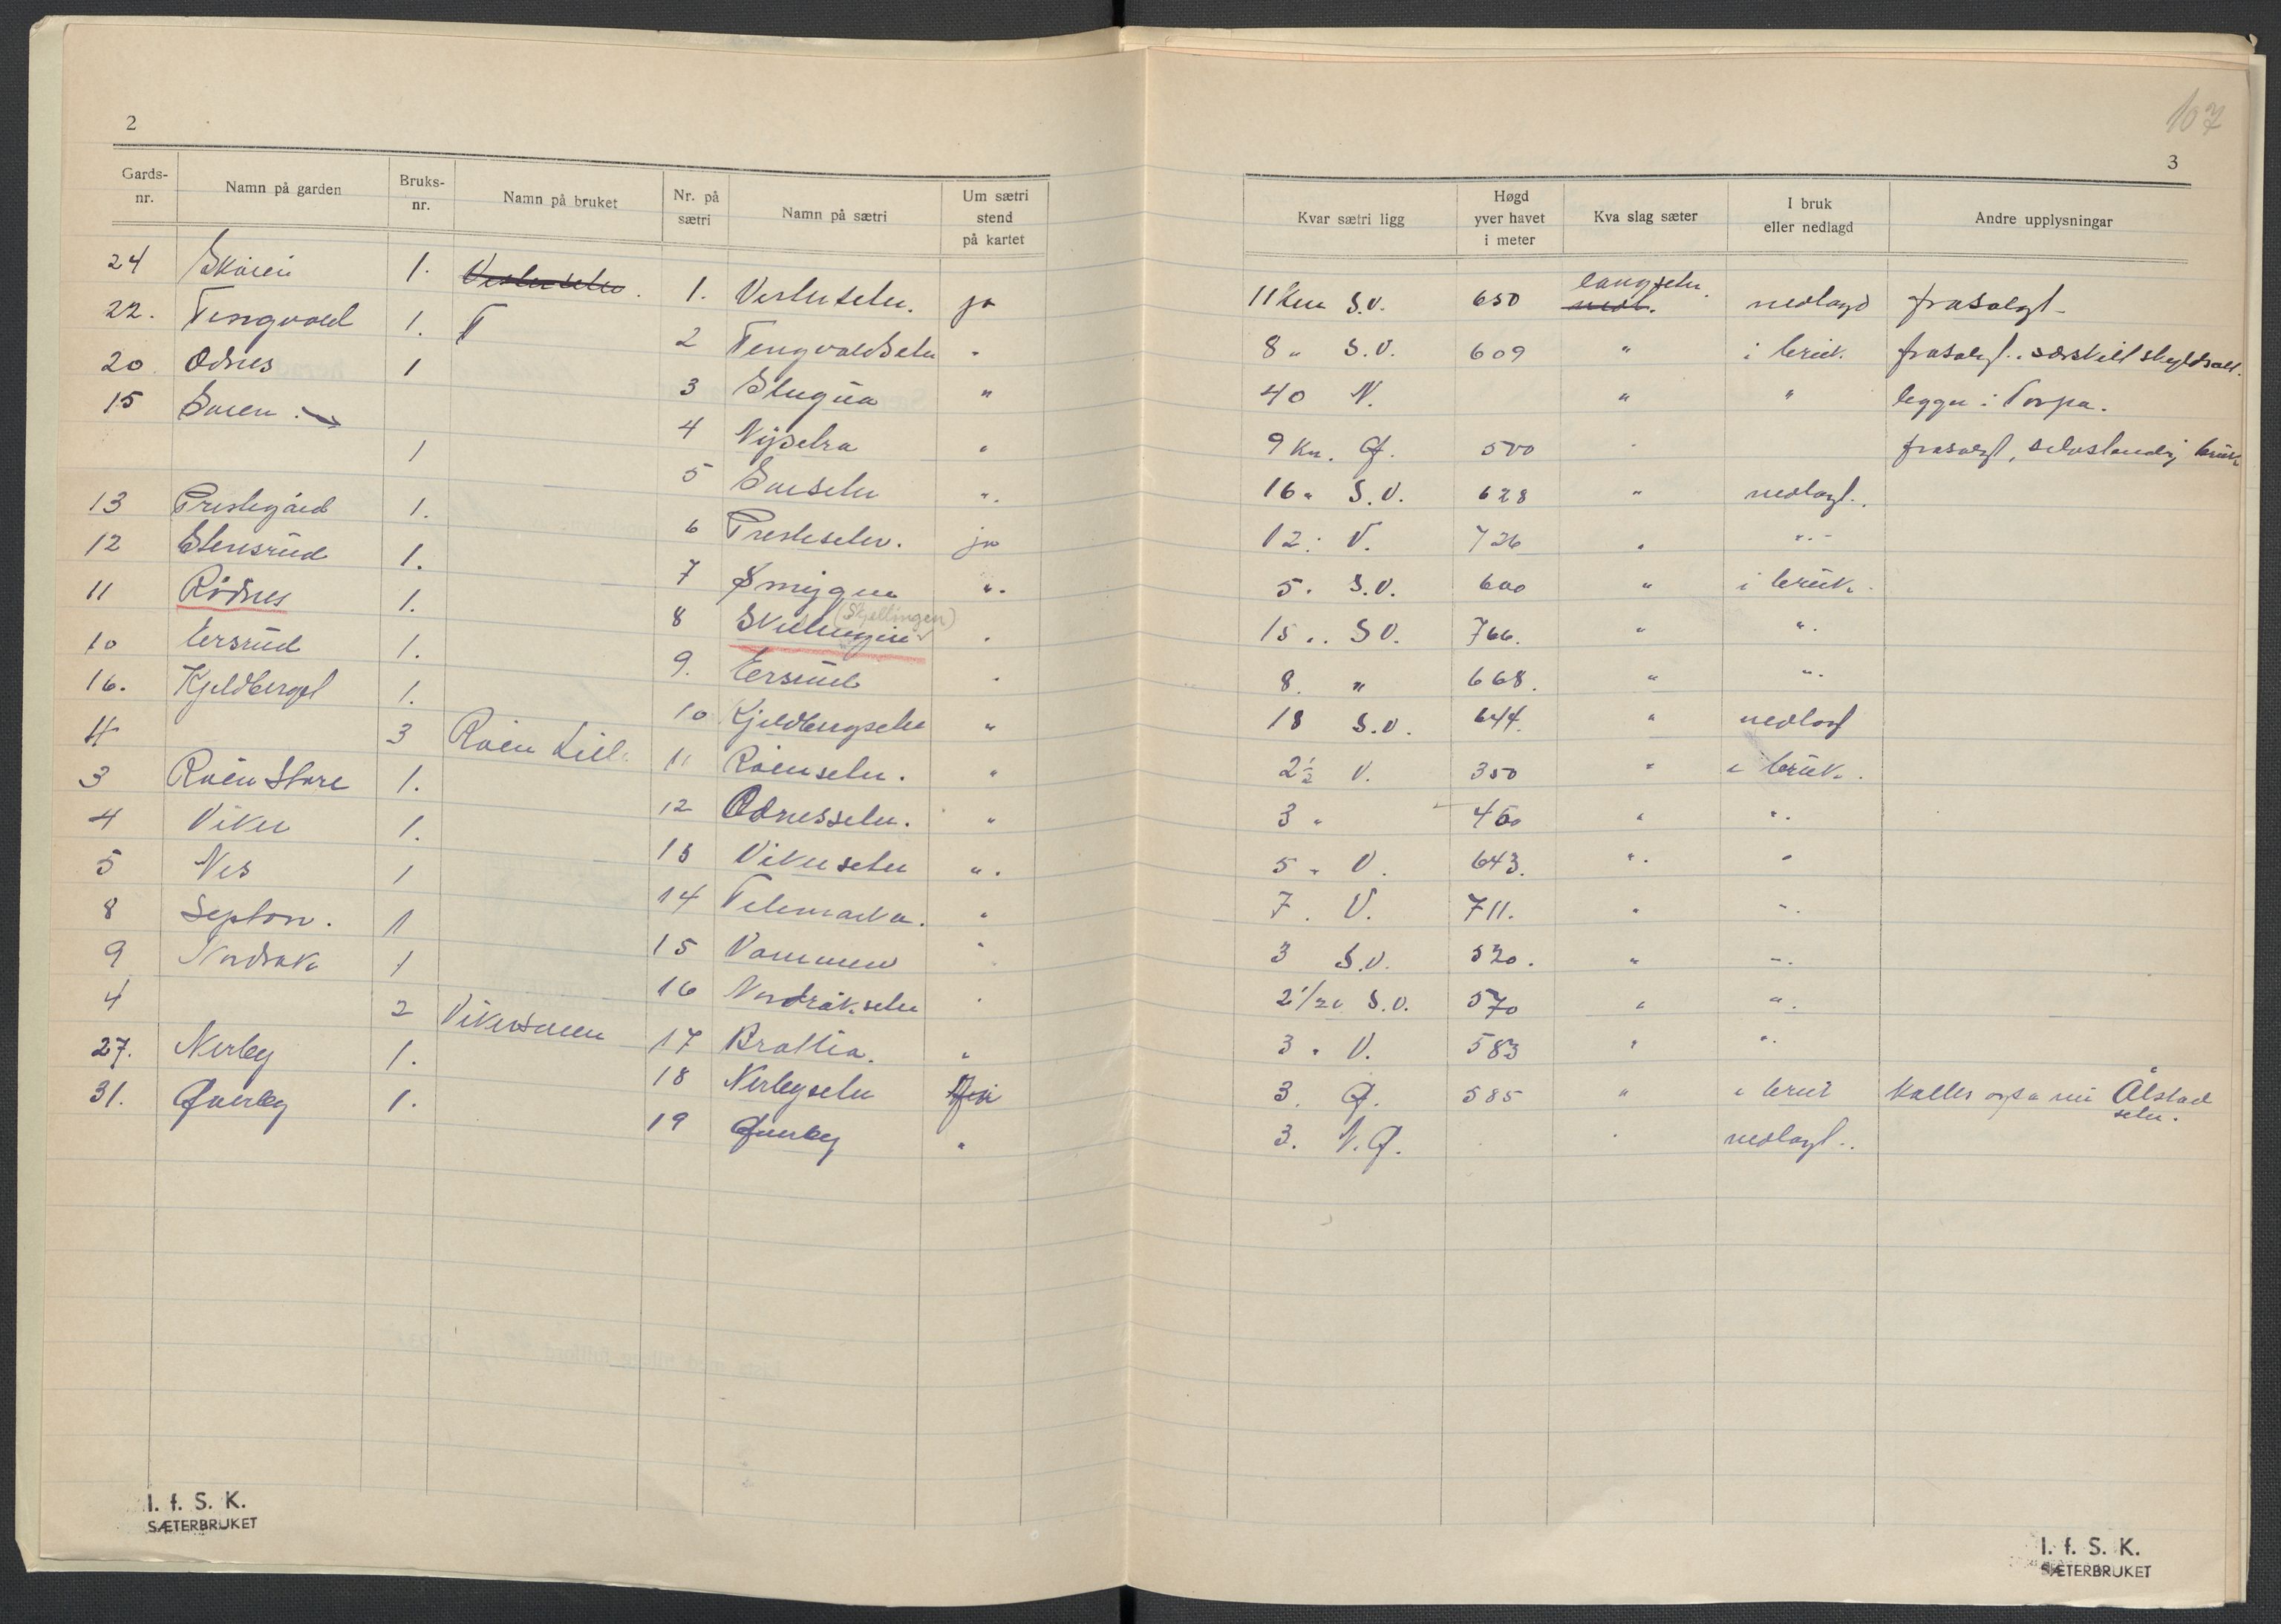 2
Gards-nr. Namn på garden Bruks-nr. Namn på bruket Nr. på sætri Namn på sætri Um sætri stend på kartet
24 Skoien 1. 1. Vesleseter. ja
22. Tingvold 1. T 2 Tingvoldseter "
20. Odnes 1 3 Slugua "
15 Suren 4 Nysetra "
1 5 Surseter "
13 Prestegård 1. 6 Presteseter. ja
12 Stensrud 1. 7 Smygen "
11 Rødnes 1. 8 Skillingen (Skjellingen) "
10 Ersrud 1. 9. Ersrud "
16. Kjeldberget 1. 10 Kjeldbergseter "
4 3 Roen Lille 11 Roenseter. "
3 Roen Store 1. 12 Odnesseter. "
4 Viken 1. 13 Vikenseter "
5 Nes 1 14 Telemarka. "
8 Septon. 1 15 Vammen "
9 Nordrak 1 16 Nordråkseter "
4 2 Vikersveen 17 Brattlia. "
27. Nerby 1. 18 Nerbyseter
31. Øverby 1. 19 Øverby "
I. f. S. K.
SÆTERBRUKET
107
3
Kvar sætri ligg Høgd yver havet i meter Kva slag sæter I bruk eller nedlagd Andre upplysningar
11 km S.V. 650 langseter nedl. nedlagd frasolgt
8 " S.V. 609 " i bruk. frasolgt. særskilt skyldsatt.
40 N. " " ligger i Torpa.
9 km. Ø. 500 " frasolgt, selvstendig bruk
16 " S.V. 628 " nedlagt.
12. V. 726 " "
5. S.V. 600 " i bruk.
15 .. S.V. 766. " "
8. " 668. " "
18 S.V. 644. " nedlagt
2½ V. 350 " i bruk.
3 " 460 " "
5 " V. 643. " "
7. V. 711. " "
3 S.V. 520. " "
2 1/2 S.V. 570 " "
3 " V. 583 " "
3. Ø. 585 " i bruk Kalles også nu Ålstad
seter.
3. N.Ø. " nedlagt..
I. f. S. K.
SÆTERBRUKET